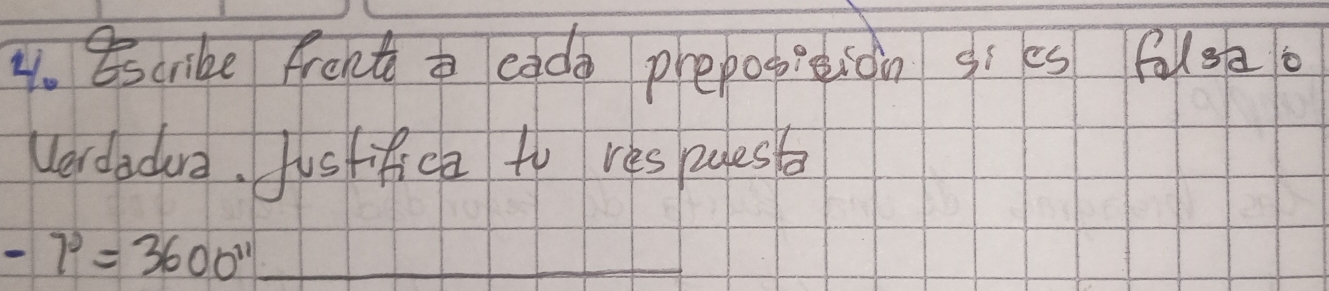 4. Escribe frente a cada preposición si es falsa o
Verdadera. Justifica tu respuesta
- 1° = 3600"